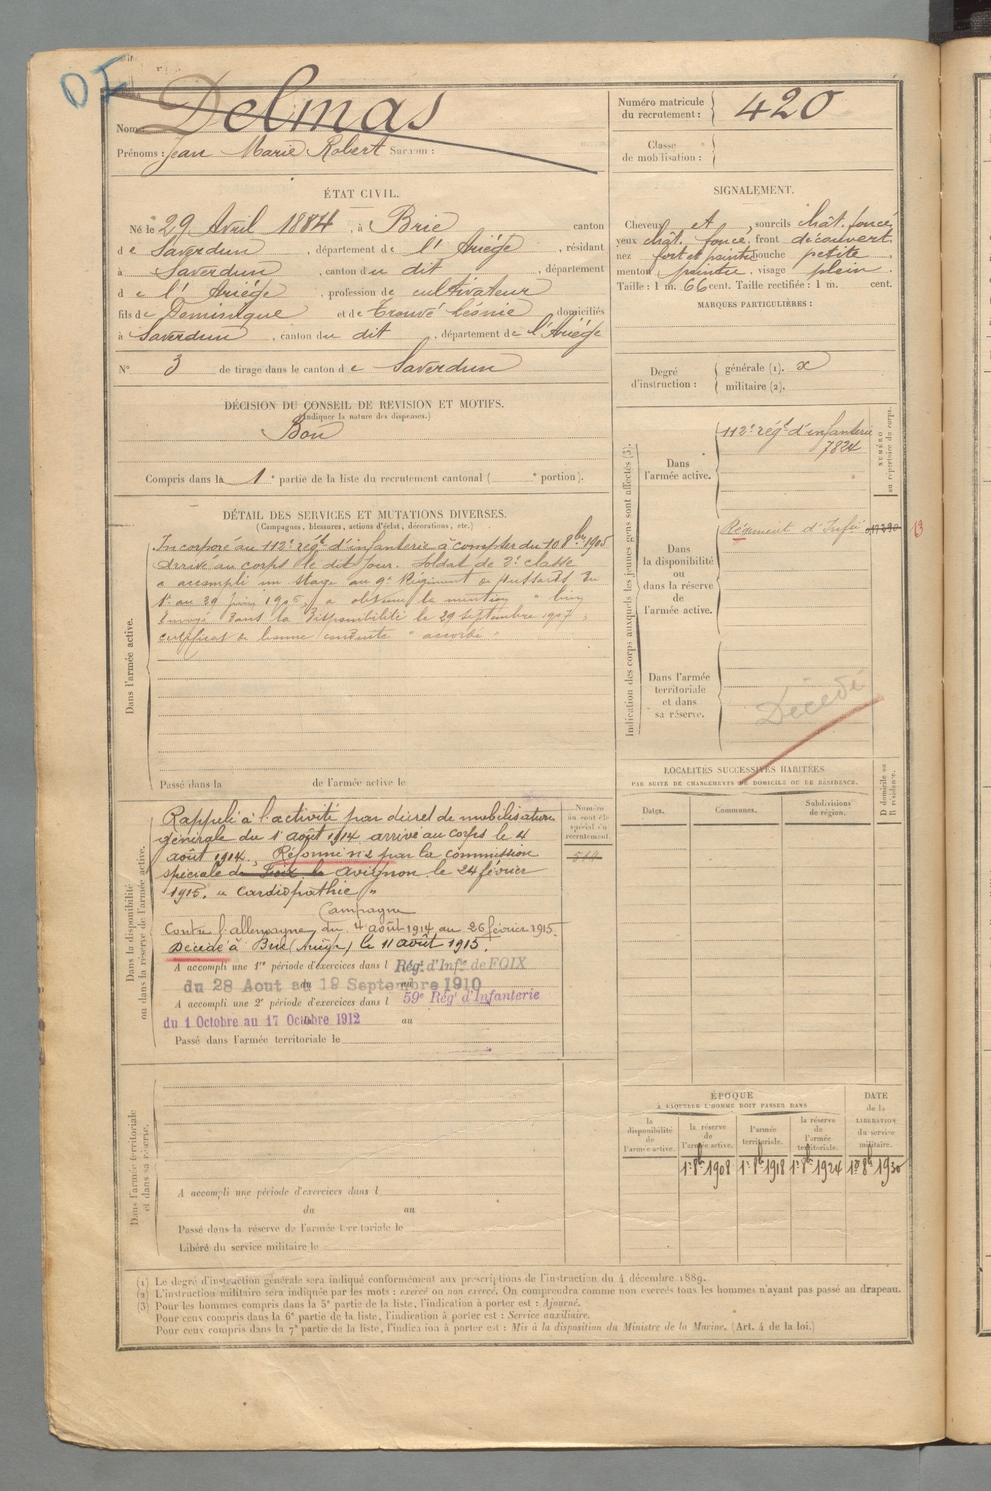 DF
Nom : Delmas
Prénoms : Jean Marie Robert Surnom :
Numéro matricule du recrutement : 420
Classe de mobilisation :
ÉTAT CIVIL.
Né le 29 Avril 1884, à Brie canton
de Saverdun, département de l'Ariège, résidant
à Saverdun, canton du dit, département
de l'Ariège, profession de cultivateur
fils de Dominique et de Trouvé Léonie domiciliés
à Saverdun, canton du dit, département de l'Ariège
N° 3 de tirage dans le canton de Saverdun
SIGNALEMENT.
Cheveux et, sourcils chât. foncé
yeux chât. foncé, front découvert
nez fort et pointu bouche petite
menton pointu, visage plein.
Taille : 1 m. 66 cent. Taille rectifiée : 1 m. cent.
MARQUES PARTICULIÈRES :
Degré d'instruction : générale (1). x
militaire (2).
DÉCISION DU CONSEIL DE REVISION ET MOTIFS.
(Indiquer la nature des dispenses.)
Bon
Compris dans la 1e partie de la liste du recrutement cantonal ( e portion).
DÉTAIL DES SERVICES ET MUTATIONS DIVERSES.
(Campagnes, blessures, actions d'éclat, décorations, etc.)
Dans l'armée active.
Incorporé au 112e régt d'infanterie à compter du 10 8bre 1905
Arrivé au corps le dit jour. Soldat de 2e classe
a accompli un stage au 9e Régiment de Hussards du
1er au 29 Juin 1905, a obtenu la mention " bien
Envoyé dans la Disponibilité le 29 septembre 1907,
certificat de bonne conduite " accordé "
Passé dans la de l'armée active le
Indication des corps auxquels les jeunes gens sont affectés (3).
NUMÉRO au répertoire du corps.
Dans l'armée active.
112e régt d'infanterie
7824
Dans la disponibilité ou dans la réserve de l'armée active.
Régiment d'Infie
13
Dans l'armée territoriale et dans sa réserve.
Décédé
LOCALITÉS SUCCESSIVES HABITÉES
PAR SUITE DE CHANGEMENTS DE DOMICILE OU DE RÉSIDENCE.
Dates. Communes. Subdivisions de région. D domicile ou R résidence.
Dans la disponibilité ou dans la réserve de l'armée active.
Rappelé à l'activité par décret de mobilisation
générale du 1er août 1914 arrivé au corps le 4
août 1914. Réformé n° 2 par la commission
spéciale de Foix le Avignon le 24 février
1915. " Cardiopathie "
Campagne
Contre l'allemagne du 4 août 1914 au 26 février 1915.
Décédé à Brie (Ariège) le 11 août 1915.
A accompli une 1re période d'exercices dans l Régt. d'Infie de FOIX
du 28 Aout au 19 Septembre 1910
A accompli une 2e période d'exercices dans l 59e Régt d'Infanterie
du 1 Octobre au 17 Octobre 1912 au
Passé dans l'armée territoriale le
Dans l'armée territoriale et dans sa réserve.
A accompli une période d'exercices dans l
du au
Passé dans la réserve de l'armée territoriale le
Libéré du service militaire le
ÉPOQUE
À LAQUELLE L'HOMME DOIT PASSER DANS
la disponibilité de l'armée active. la réserve de l'armée active. l'armée territoriale. la réserve de l'armée territoriale.
DATE de la LIBÉRATION du service militaire.
1er 8bre 1908 1er 8bre 1918 1er 8bre 1924 1er 8bre 1930
(1) Le degré d'instruction générale sera indiqué conformément aux prescriptions de l'instruction du 4 décembre 1889.
(2) L'instruction militaire sera indiquée par les mots : exercé ou non exercé. On comprendra comme non exercés tous les hommes n'ayant pas passé au drapeau.
(3) Pour les hommes compris dans la 5e partie de la liste, l'indication à porter est : Ajourné.
Pour ceux compris dans la 6e partie de la liste, l'indication à porter est : Service auxiliaire.
Pour ceux compris dans la 7e partie de la liste, l'indication à porter est : Mis à la disposition du Ministre de la Marine. (Art. 4 de la loi.)